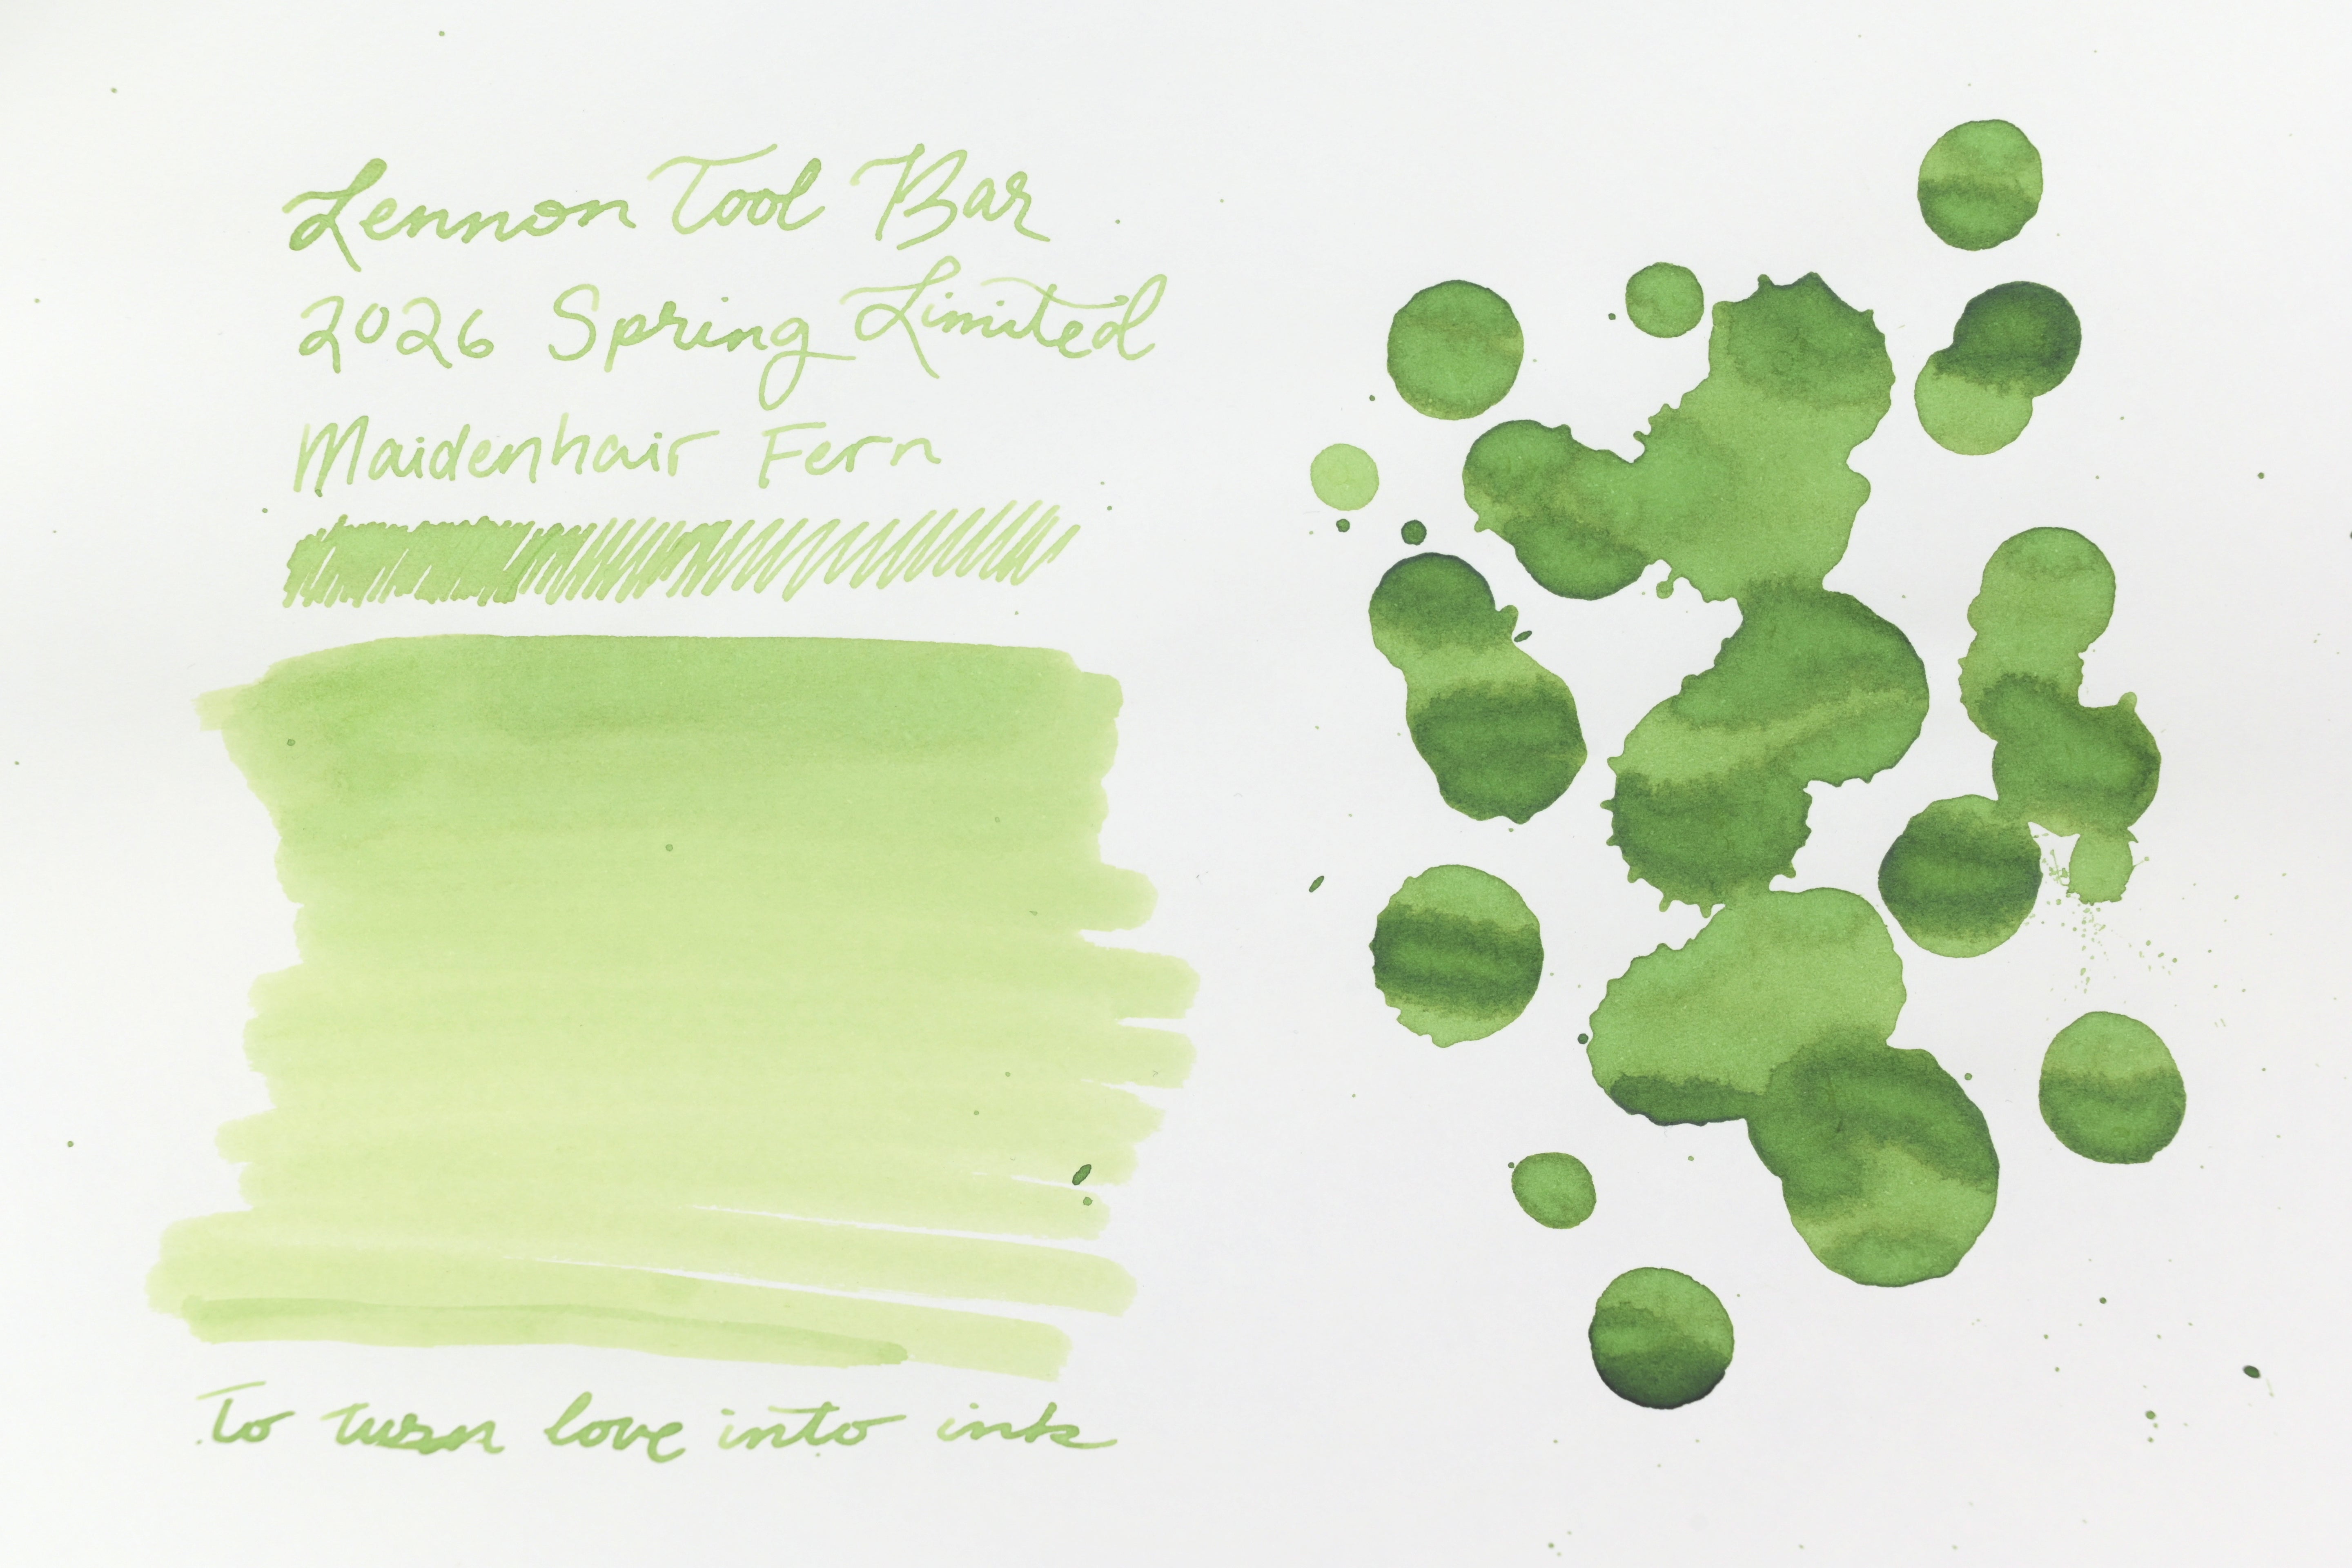 Lennon Tool Bar
2026 Spring Limited
Maidenhair Fern
To turn love into ink